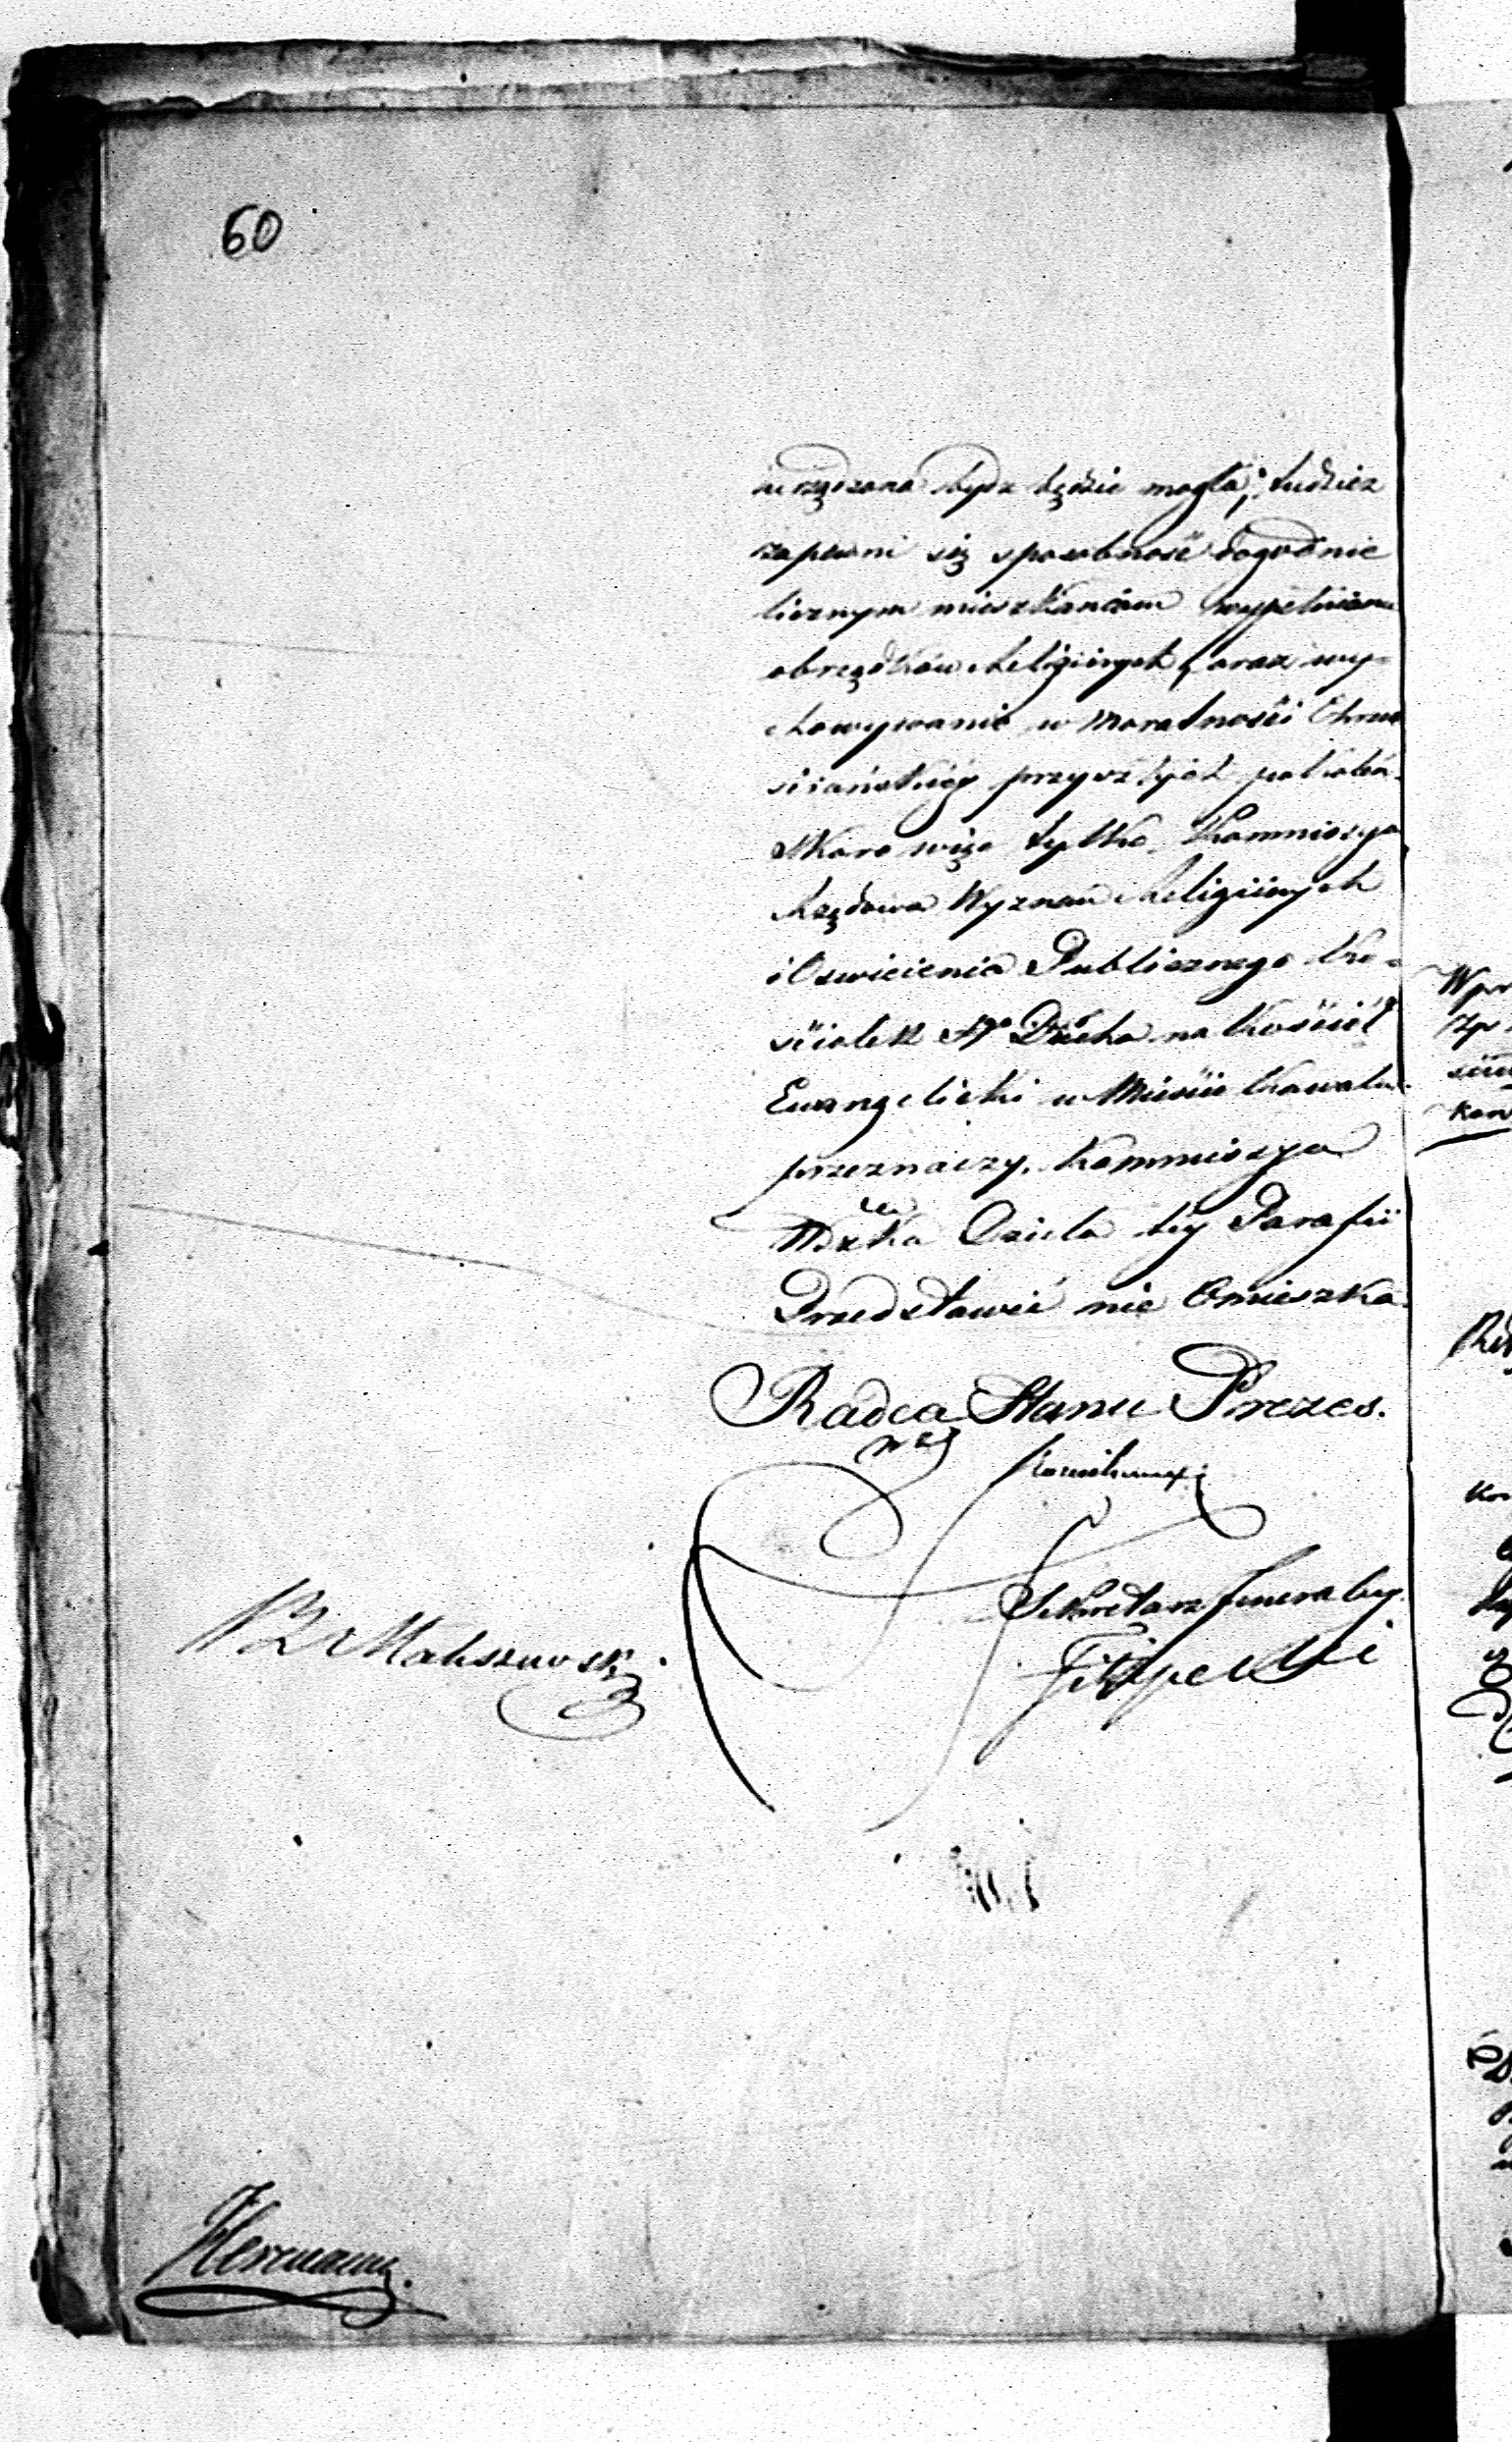 60
urządzona bydz będzie mogła, tudzież
zapewni się sposobność dogodnie
licznym mieszkańcom wypełniania
obrządków Religiinych, oraz wy-
chowywanie w moralności Chrze
sciańskiéy przyszłych pokoleń.
Skoro więc tylko Kommissya
Rządowa Wyznań Religiinych
i Oswiecenia Publicznego Ko-
ściołek Sgo Ducha na Kościół
Ewangelicki w Mieście Kowalu
przeznaczy, Kommissya
Wdzka Dzieła téy Parafii
Przedstawić nie Omieszka.
Radca Stanu Prezes.
Sekretarz Jeneralny
Filipecki
Herrmann